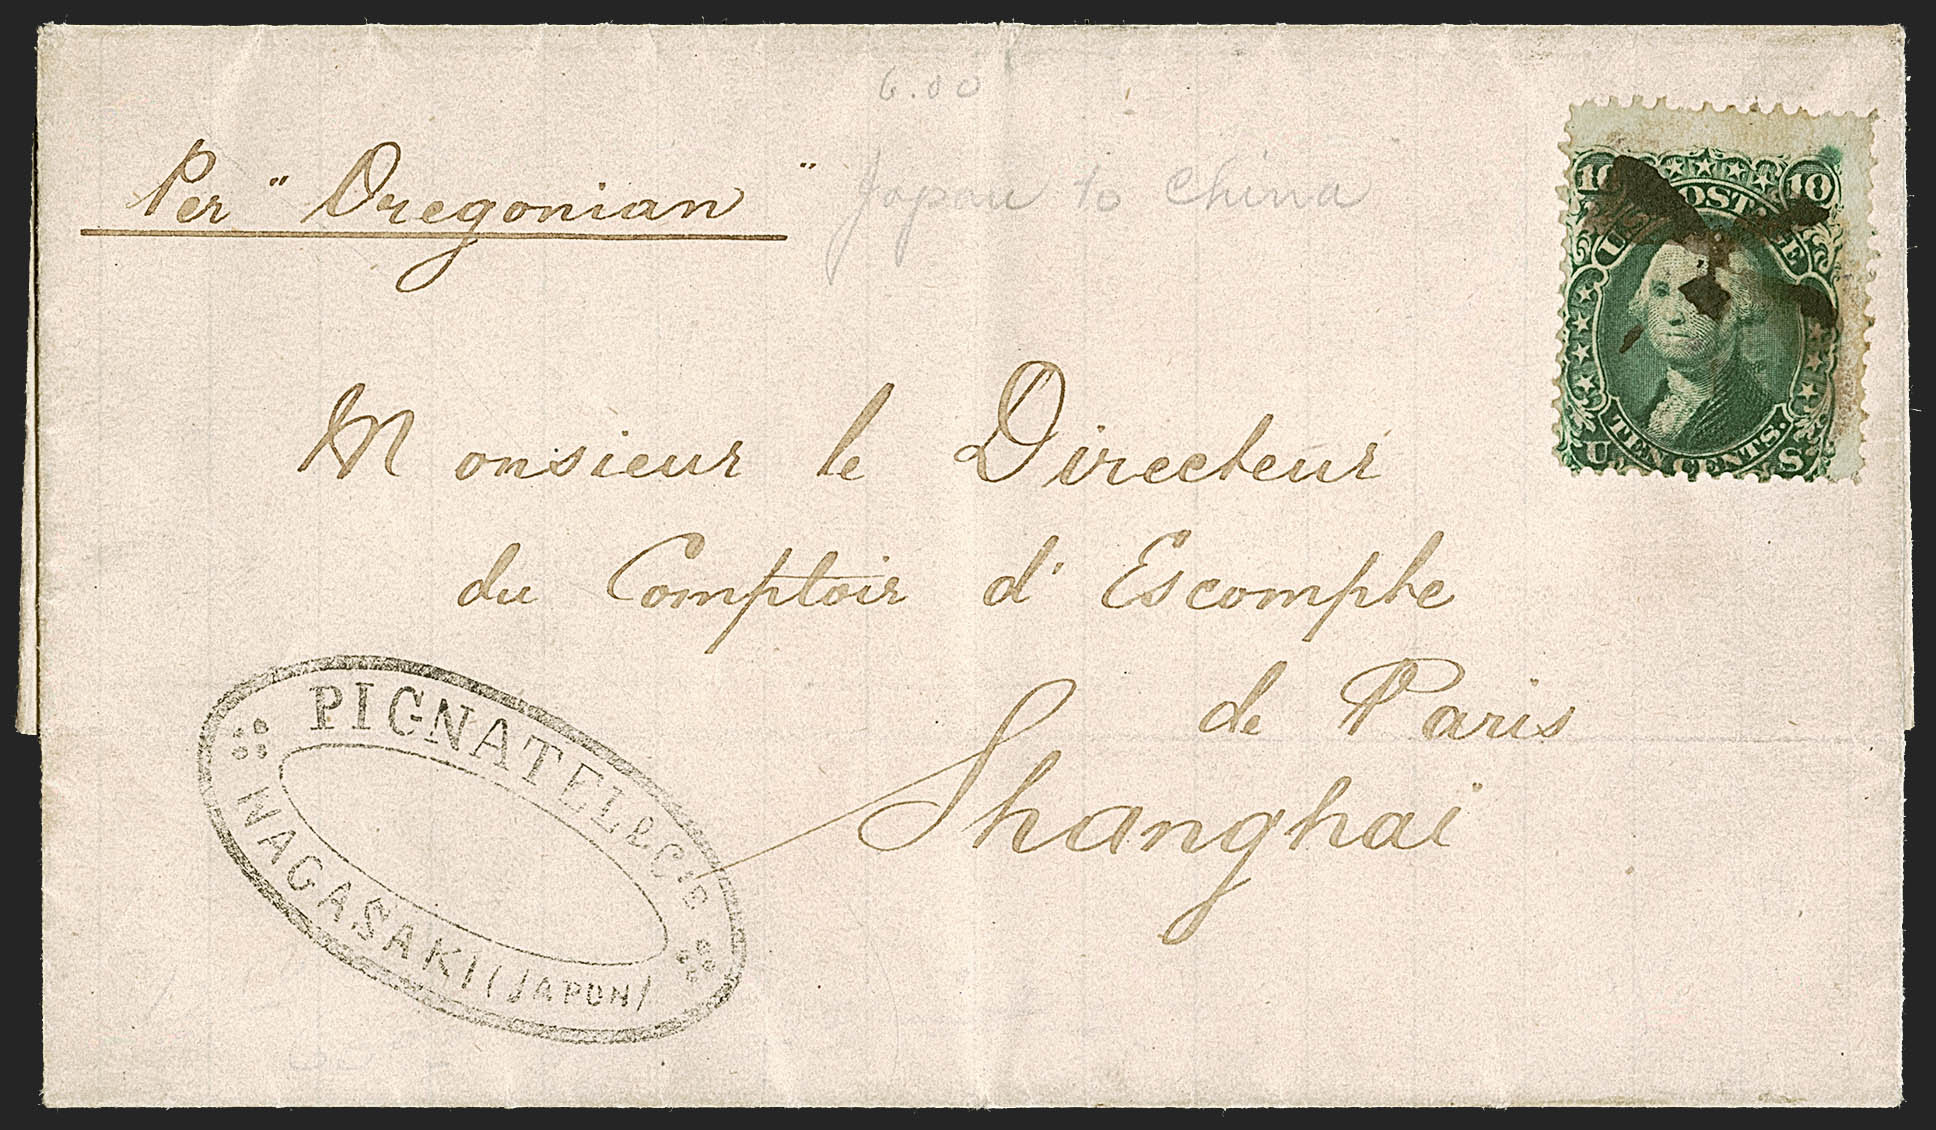 6.00
Per "Oregonian"
Japan to China
10 10
U.S. POSTAGE
TEN CENTS.
U S
Monsieur le Directeur
du Comptoir d'Escompte
de Paris
Shanghai
PIGNATEL & Cie
NAGASAKI (JAPON)